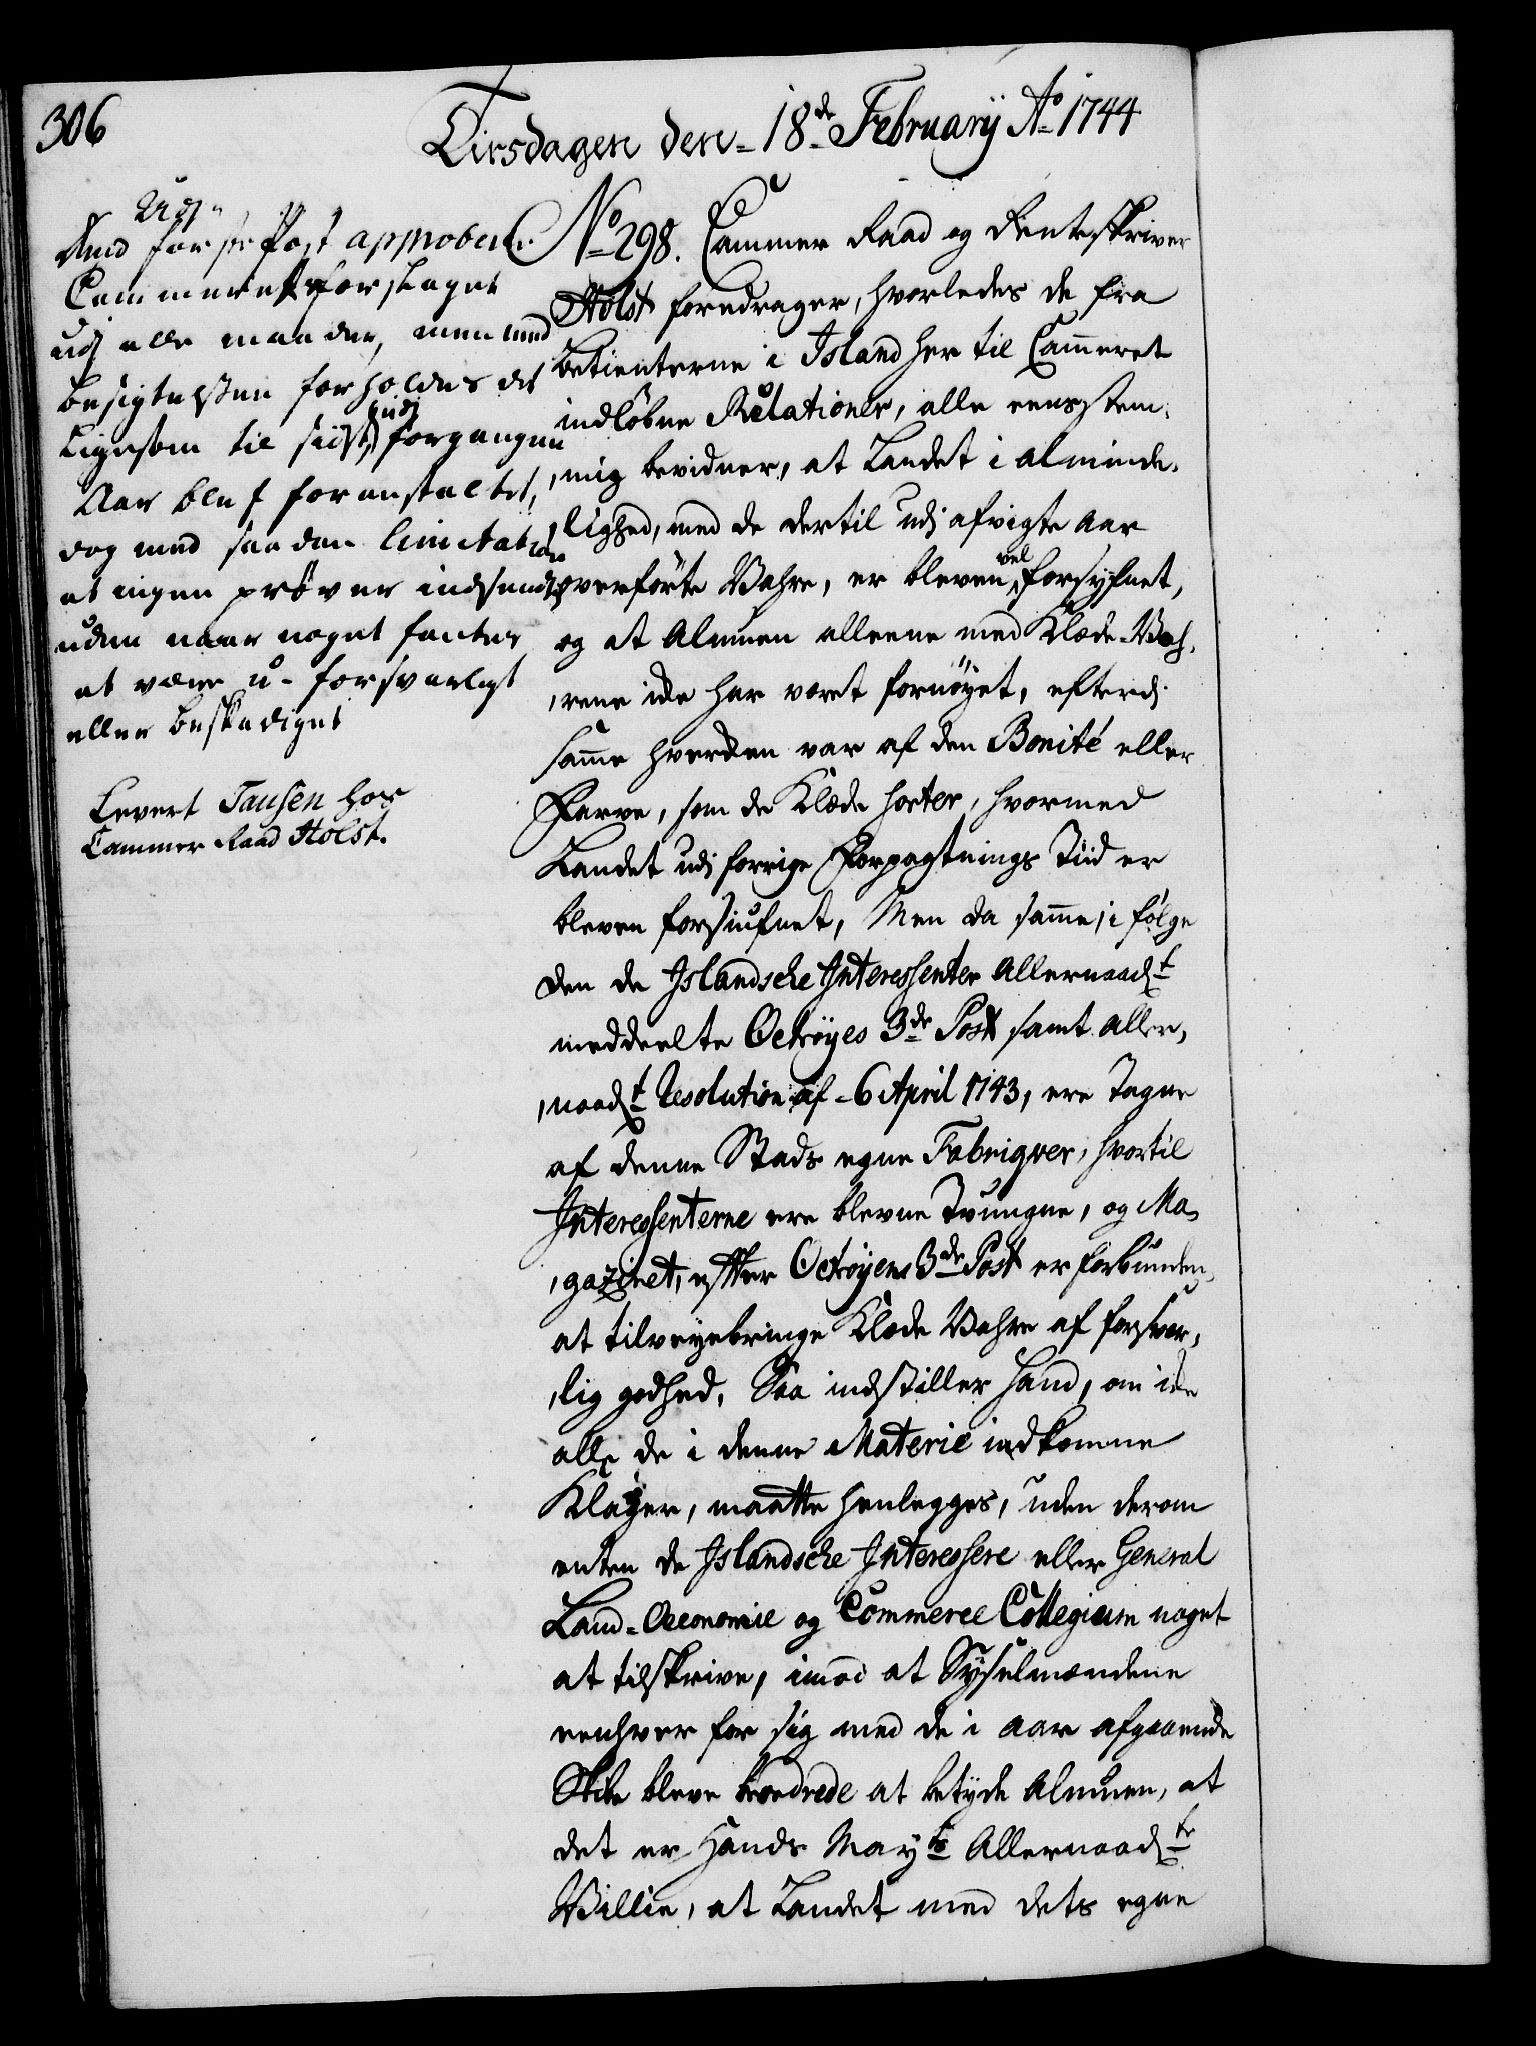 306
Tirsdagen den 18de February Ao 1744
Udj
første Post approberes
Cammerets forslaget
udj alle maader, men med
besigtelsen forholdes det
ligesom til sidst udj forgangen
Aar blef foranstaltet,
dog med saadan limitation
at ingen prøver indsendes
uden naar noget findes
at være u-forsvarligt
eller beskadiget
Levert Tausen hos
Cammer Raad Holst.
No 298. Cammer Raad og Renteskriver
Holst foredrager, hvorledes de fra
Betienterne i Island her til Cammeret
indløbne Relationer, alle eensstem,
,mig bevidner, at Landet i alminde,
,lighed, med de dertil udj afvigte Aar
overførte Vahre, er bleven vel forsyfnet,
og at Almuen alleene med Klæde-Vah,
,rene icke har været fornøyet, efterdj
samme hverken var af den Bonité eller
Farve, som de Klæde sorter, hvormed
Landet udj forrige Forpagtnings Tiid er
bleven forsiufnet, Men da samme, i følge
den de Islandsche Interessenter Allernaadt
meddeelte Octroyes 3de Post samt Aller,
,naadt Resolution af 6 April 1743, ere Tagne
af denne Stads egne Fabriqver, hvortil
Interessenterne ere blevne Tvungne, og Ma,
,gazinet, efter Octroyens 3de Post er forbunden,
at tilveyebringe Klæde Vahre af forsvar,
,lig godhed, Saa indstiller Hand, om icke
alle de i denne Materie indkomne
Klager, maatte henlegges, uden derom
enten de Islandsche Interessere eller General
Land-Oeconomie og Commerce Collegium noget
at tilskrive, imod at Sysselmændene
eenhver for sig med de i Aar afgaaende
Skibe bleve beordrede at betyde Almuen, at
det er Hands Mayts Allernaadte
Villie, at Landet med dets egne